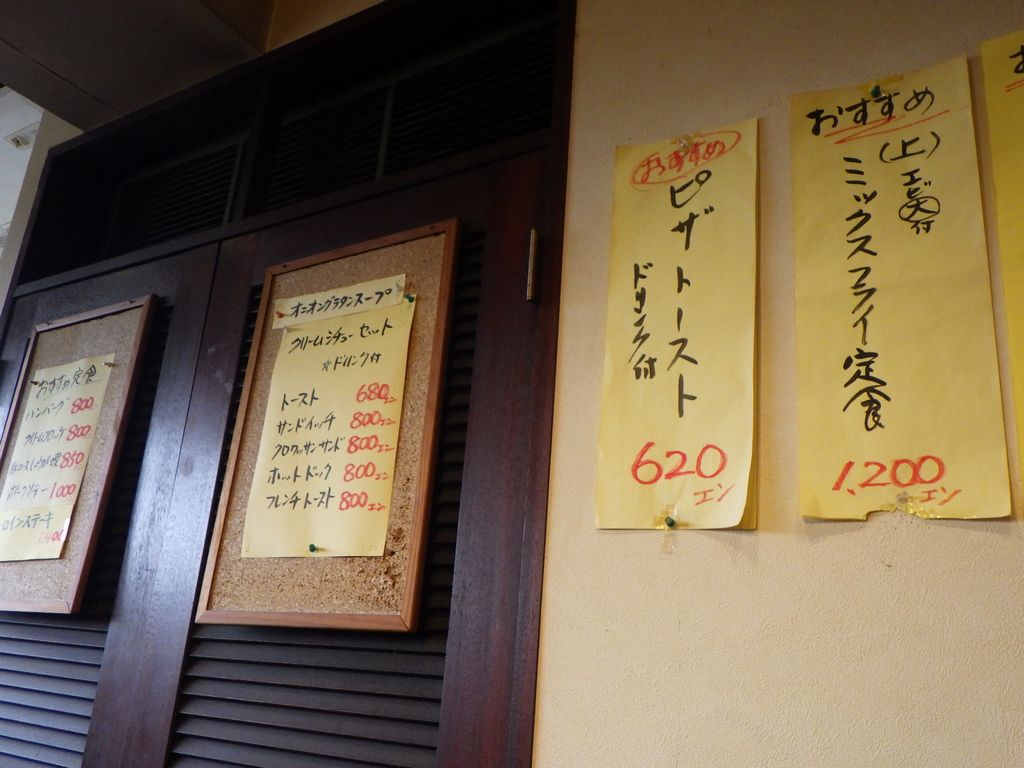 おすすめ定食
ハンバーグ 800
クリームコロッケ 800
850
ポークソテー 1000
ロインステーキ
オニオングラタンスープ
クリームシチューセット
☆ドリンク付
トースト 680エン
サンドイッチ 800エン
クロワッサンサンド 800エン
ホットドック 800エン
フレンチトースト 800エン
おすすめ
ピザトースト
ドリンク付
620エン
おすすめ
(上)エビ 付
ミックスフライ定食
1,200エン